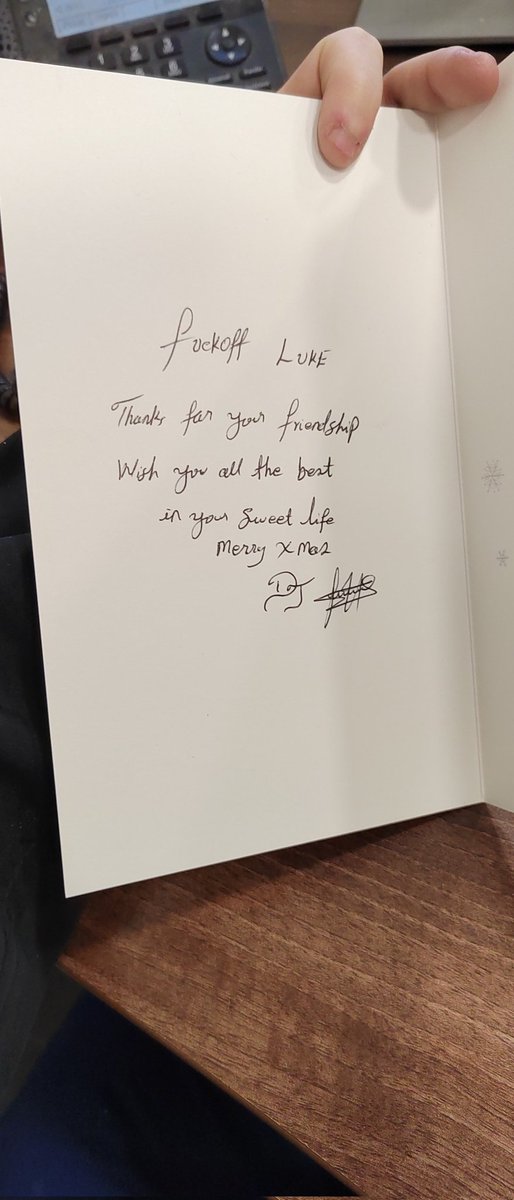 fuckoff LUKE
Thanks for your friendship
Wish you all the best
in your sweet life
Merry Xmas
DJ